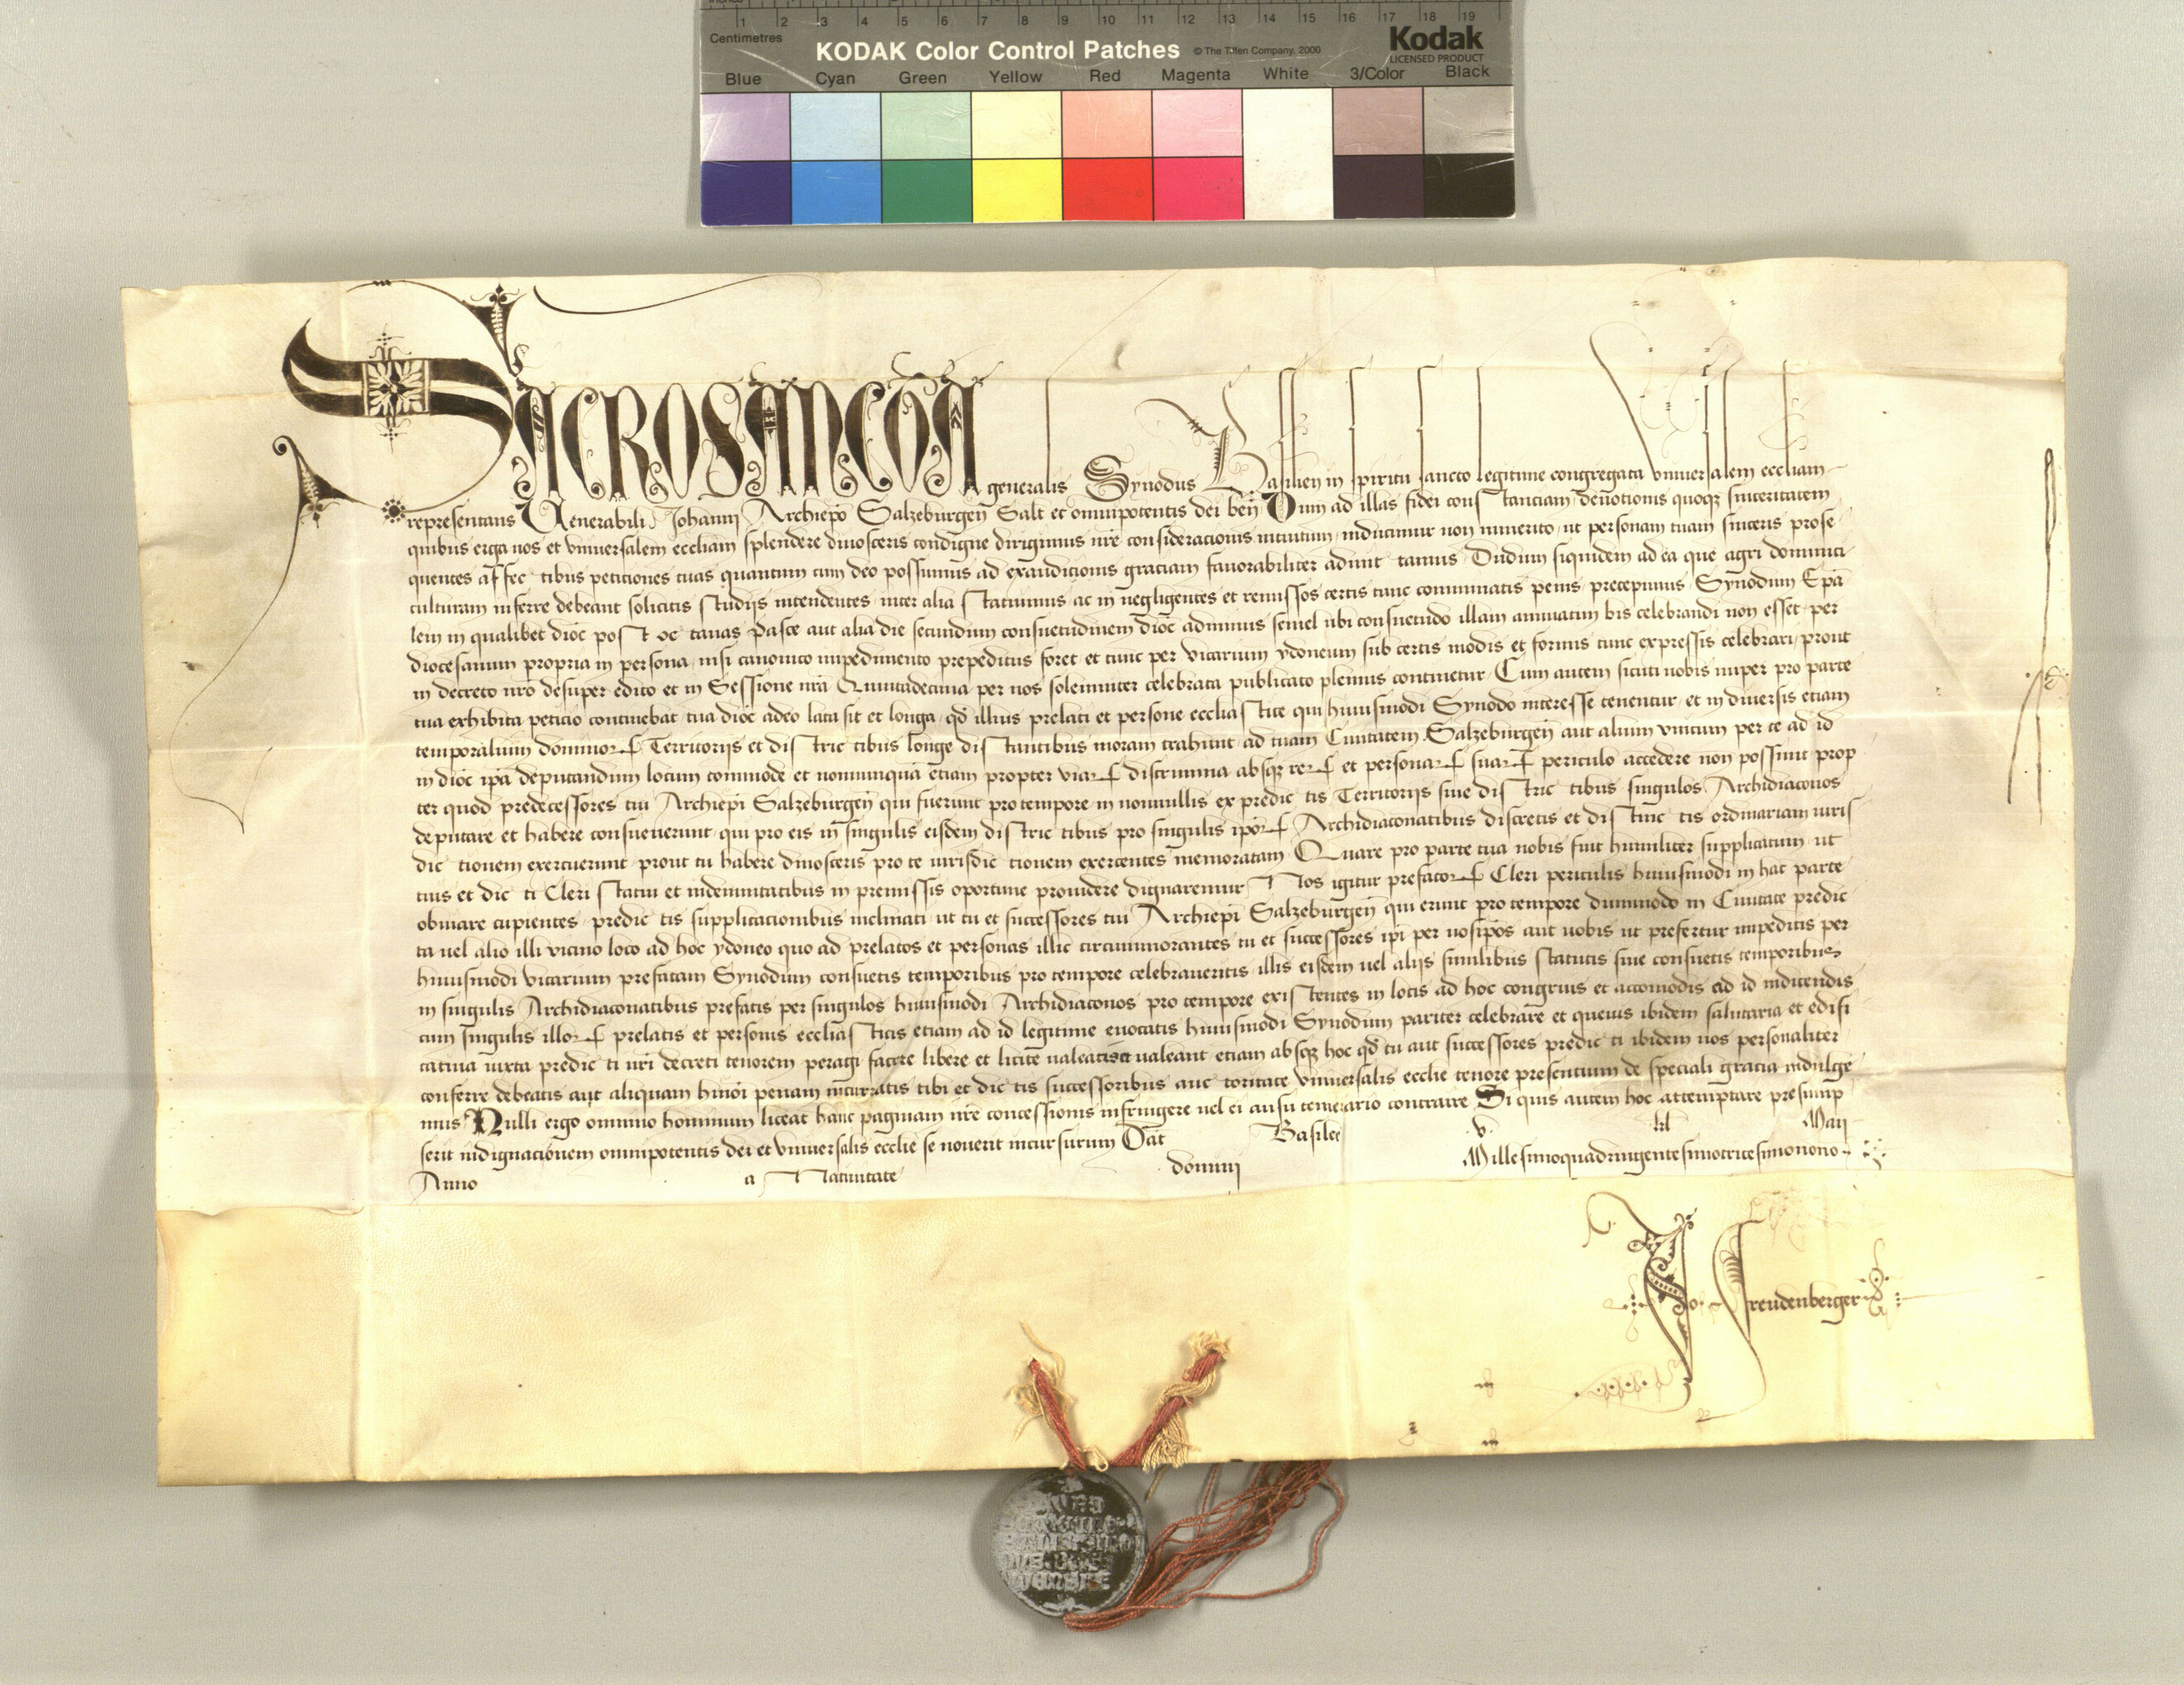 1 2 3 4 5 6 7 8 9 10 11 12 13 14 15 16 17 18 19
Centimetres
KODAK Color Control Patches © The Tiffen Company, 2000 Kodak
LICENSED PRODUCT
Blue Cyan Green Yellow Red Magenta White 3/Color Black
SACROSANCTA generalis Synodus Basilien in spiritu sancto legitime congregata vniuersalem eccliam
representans Venerabili Johanni Archiepo Salzeburgen Salt et omnipotentis dei ben Dum ad illas fidei constantiam deuotionis quoqz sinceritatem
quibus erga nos et vniuersalem eccliam splendere dinosceris condigne dirigimus nre consideracionis intuitum inducimur non inmerito ut personam tuam sinceris prose
quentes affectibus peticiones tuas quantum cum deo possumus ad exauditionis graciam fauorabiliter admittamus Dudum siquidem ad ea que agri dominici
culturam inferre debeant solicitis studijs intendentes inter alia statuimus ac in negligentes et remissos certis tunc comminatis penis precepimus Synodum Epa
lem in qualibet dioc post octauas Pasce aut alia die secundum consuetudinem dioc adminus semel ubi consuetudo illam annuatim bis celebrandi non esset per
diocesanum propria in persona nisi canonico impedimento prepeditus foret et tunc per vicarium ydoneum sub certis modis et formis tunc expressis celebrari prout
in decreto nro desuper edito et in Sessione nra Quintadecima per nos solemniter celebrata publicato plenius continetur Cum autem sicuti nobis nuper pro parte
tua exhibita peticio continebat tua dioc adeo lata sit et longa qd illius prelati et persone eccliastice qui huiusmodi Synodo interesse tenentur et in diuersis etiam
temporalium dominor Territorijs et districtibus longe distantibus moram trahunt ad tuam Ciuitatem Salzeburgen aut alium vnicum per te ad id
in dioc ipa deputandum locum commode et nonnunqua etiam propter viar discrimina absqz rer et personar suar periculo accedere non possunt prop
ter quod predecessores tui Archiepi Salzeburgen qui fuerunt pro tempore in nonnullis ex predictis Territorijs siue districtibus singulos Archidiaconos
deputare et habere consueuerunt qui pro eis in singulis eisdem districtibus pro singulis ipor Archidiaconatibus discretis et distinctis ordinariam iuris
dictionem exercuerunt prout tu habere dinosceris pro te iurisdictionem exercentes memoratam Quare pro parte tua nobis fuit humiliter supplicatum ut
tuis et dicti Cleri statui et indemnitatibus in premissis oportune prouidere dignaremur Nos igitur prefator Cleri periculis huiusmodi in hac parte
obuiare cupientes predictis supplicacionibus inclinati ut tu et successores tui Archiepi Salzeburgen qui erunt pro tempore dummodo in Ciuitate predic
ta uel alio illi vicino loco ad hoc ydoneo quo ad prelatos et personas illic circummorantes tu et successores ipi per uosipos aut uobis ut prefertur impeditis per
huiusmodi vicarium prefatam Synodum consuetis temporibus pro tempore celebraueritis illis eisdem uel alijs similibus statutis siue consuetis temporibus
in singulis Archidiaconatibus prefatis per singulos huiusmodi Archidiaconos pro tempore existentes in locis ad hoc congruis et accomodis ad id indicendis
cum singulis illor prelatis et personis ecclíasticis etiam ad id legitime euocatis huiusmodi Synodum pariter celebrare et queuis ibidem salutaria et edifi
catiua iuxta predicti nri decreti tenorem peragi facere libere et licite ualeatis et ualeant etiam absqz hoc qd tu aut successores predicti ibidem uos personaliter
conferre debeatis aut aliquam hmoi penam incurratis tibi et dictis successoribus auctoritate vniuersalis ecclie tenore presentium de speciali gracia indulge
mus Nulli ergo omnino hominum liceat hanc paginam nre concessionis infringere uel ei ausu temerario contraire Si quis autem hoc attemptare presump
serit indignacionem omnipotentis dei et vniuersalis ecclie se nouerit incursurum Dat Basilee v kl Maij
Anno a Natiuitate domini Millesimoquadringentesimotricesimonono
Jo Freudenberger